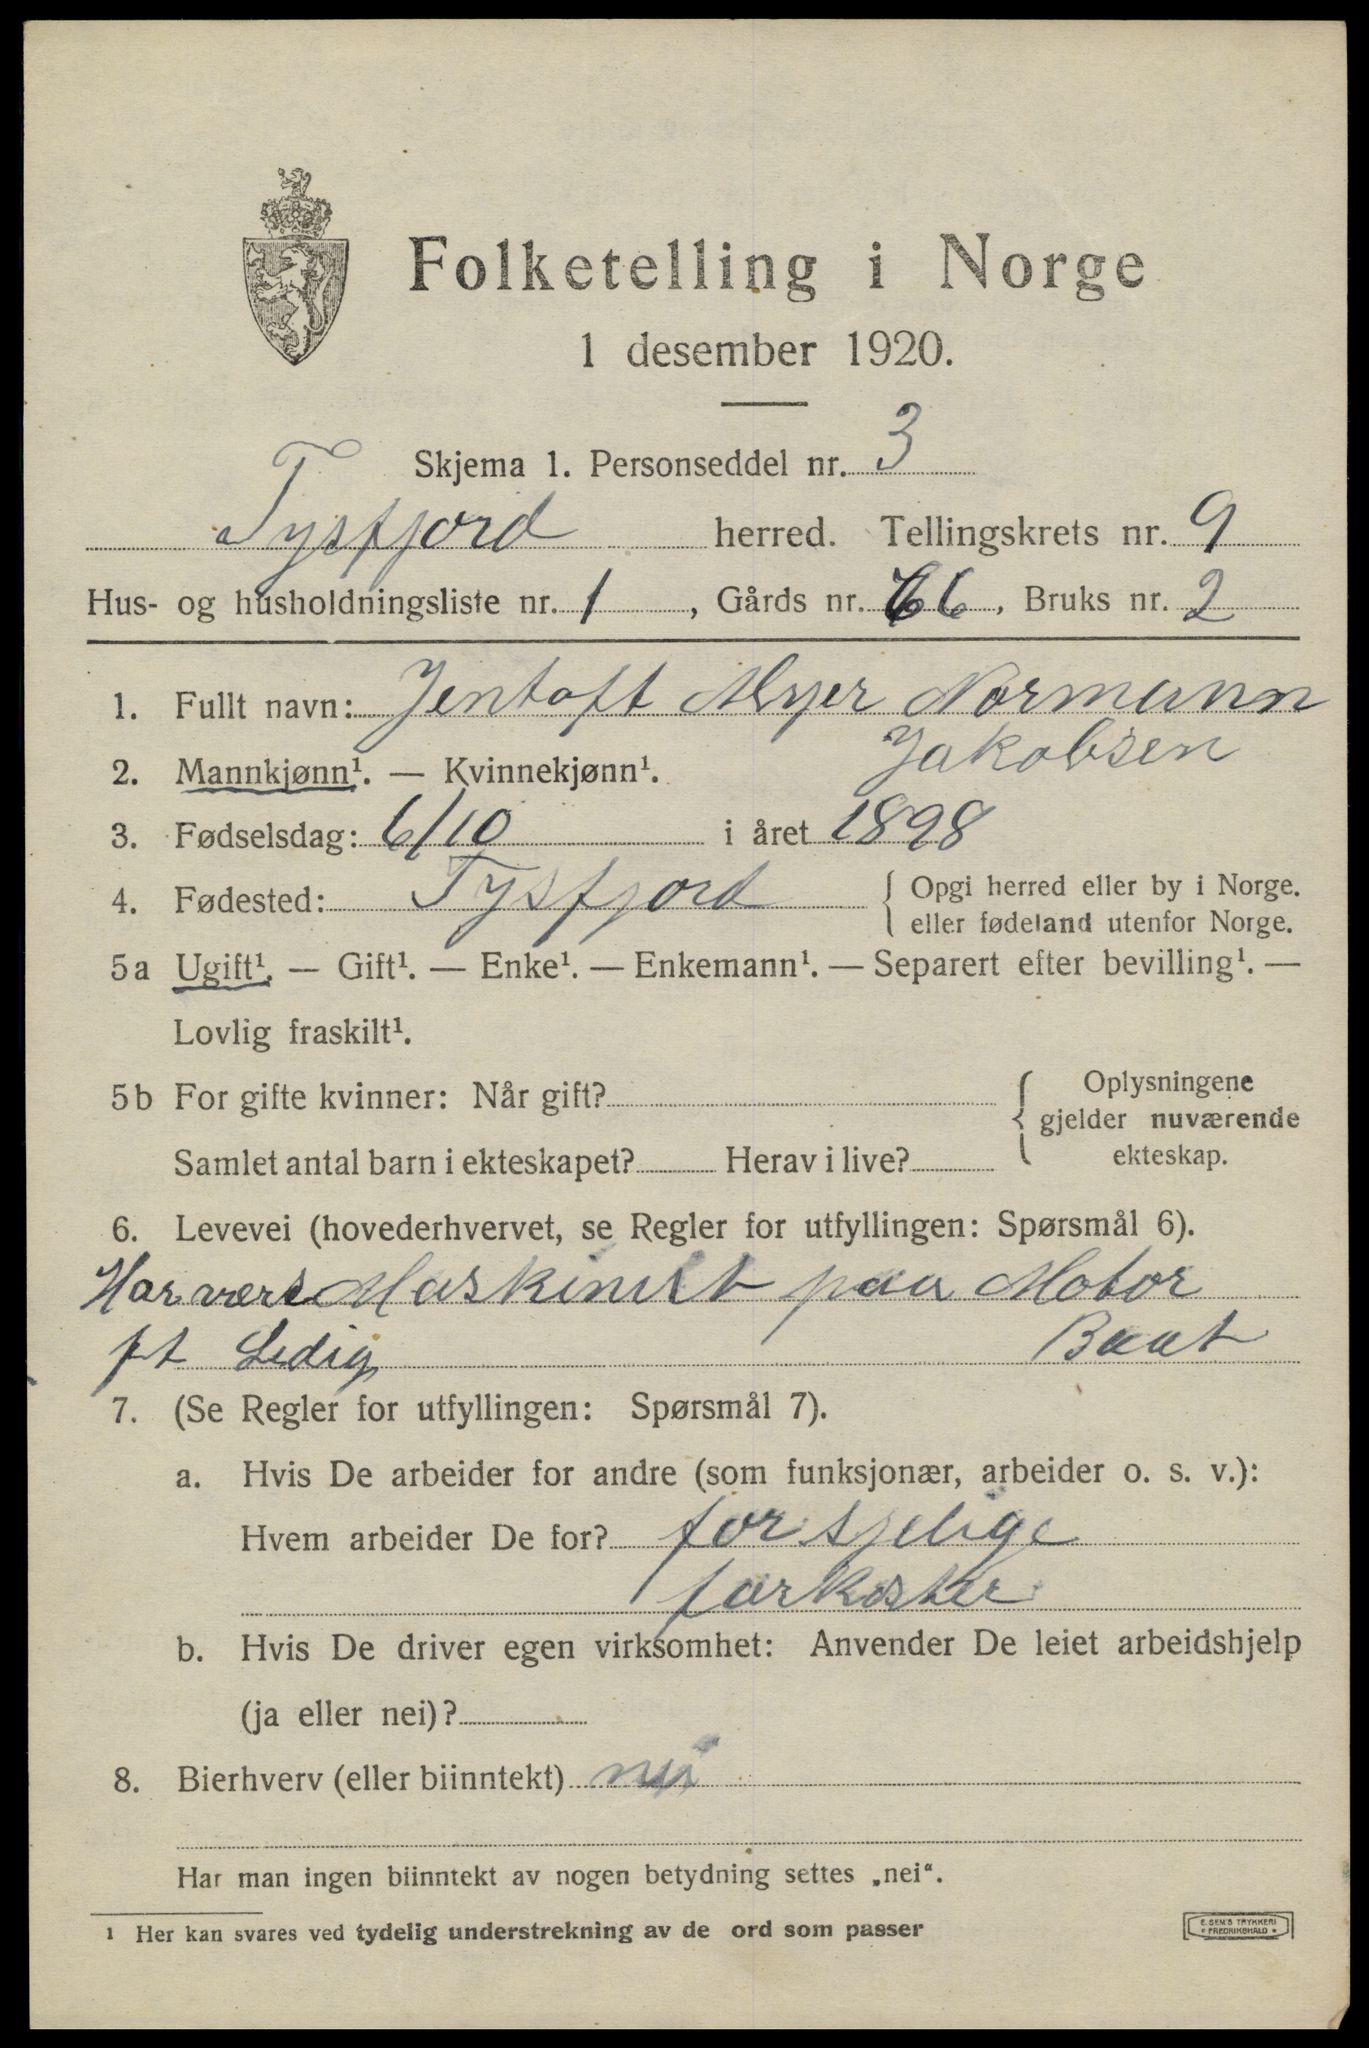 Folketelling i Norge
1 desember 1920.
Skjema 1. Personseddel nr. 3
Tysfjord herred. Tellingskrets nr. 9
Hus- og husholdningsliste nr. 1, Gårds nr. 66, Bruks nr. 2
1. Fullt navn: Jentoft Myer Normann
Jakobsen
2. Mannkjønn¹. — Kvinnekjønn¹.
3. Fødselsdag: 6/10 i året 1898
4. Fødested: Tysfjord { Opgi herred eller by i Norge.
eller fødeland utenfor Norge.
5a Ugift¹. — Gift¹. — Enke¹. — Enkemann¹. — Separert efter bevilling¹. —
Lovlig fraskilt¹.
5b For gifte kvinner: Når gift? { Oplysningene
gjelder nuværende
Samlet antal barn i ekteskapet? Herav i live? ekteskap.
6. Levevei (hovederhvervet, se Regler for utfyllingen: Spørsmål 6).
Har vært Maskinist paa Motor
pt Ledig Baat
7. (Se Regler for utfyllingen: Spørsmål 7).
a. Hvis De arbeider for andre (som funksjonær, arbeider o. s. v.):
Hvem arbeider De for? forsjelige
farkoster
b. Hvis De driver egen virksomhet: Anvender De leiet arbeidshjelp
(ja eller nei)?
8. Bierhverv (eller biinntekt) nei
Har man ingen biinntekt av nogen betydning settes „nei“.
¹ Her kan svares ved tydelig understrekning av de ord som passer
E. SEM'S TRYKKERI
* FREDRIKSHALD *